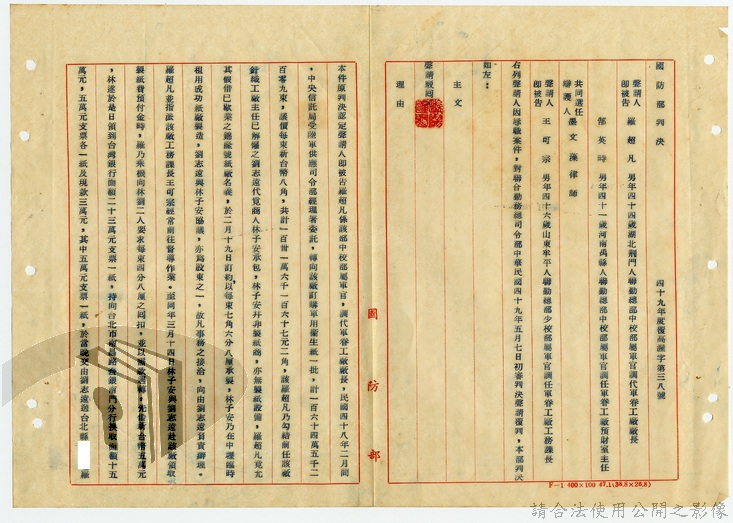 國防部判決
四十九年度覆高誠字第三八號
聲請人
即被告 羅超凡 男年四十四歲湖北荊門人聯勤總部中校部屬軍官調代軍眷工廠廠長
鄒英時 男年四十一歲河南禹縣人聯勤總部中校部屬軍官調任軍眷工廠預財室主任
共同選任
辯護人 文藻律師
聲請人
即被告 王可宗 男年四十六歲山東牟平人聯勤總部少校部屬軍官調任軍眷工廠工務課長
右列聲請人因辱職案件，對聯合勤務總司令部中華民國四十九年五月七日初審判決聲請覆判，本部判決
如左：
主文
聲請駁回
理由
國防部
本件原判決認定聲請人即被告羅超凡係該部中校部屬軍官，調代軍眷工廠廠長，民國四十八年二月間
，中央信託局受陸軍供應司令部經理署委託，轉向該廠訂購軍用衛生紙一批，計一百六十四萬五千二
百零九束，議價每束新台幣八角，共計一百卅一萬六千一百六十七元二角，該羅超凡乃勾結前任該廠
針織工廠主任已解僱之劉志遠代覓商人林子安承包，林子安并非製紙商，亦無製紙設備，羅超凡竟允
其假借已歇業之 號紙廠名義，於二月十九日訂約以每束七角六分八厘承製，林子安乃在中壢臨時
租用成功紙廠製造，劉志遠與林子安協議，亦為股東之一，故凡事務之接洽，均由劉志遠負責辦理。
羅超凡並指派該廠工務課長王可宗經常前往督導作業。至同年三月十四日林子安與劉志遠赴該廠領取
製紙費預付金時，羅乃乘機向林劉二人要求每束四分八厘之回扣，並以 先借新台幣五萬元
，林遂於是日領到台灣銀行面額二十三萬元支票一紙，持向台北市南昌路 銀行 門分行換取面額十五
萬元，五萬元支票各一紙及現款三萬元，其中五萬元支票一紙，於當晚交由劉志遠送台北縣 羅
F-1 400×100 47.1(38.8×26.8)
請合法使用公開之影像